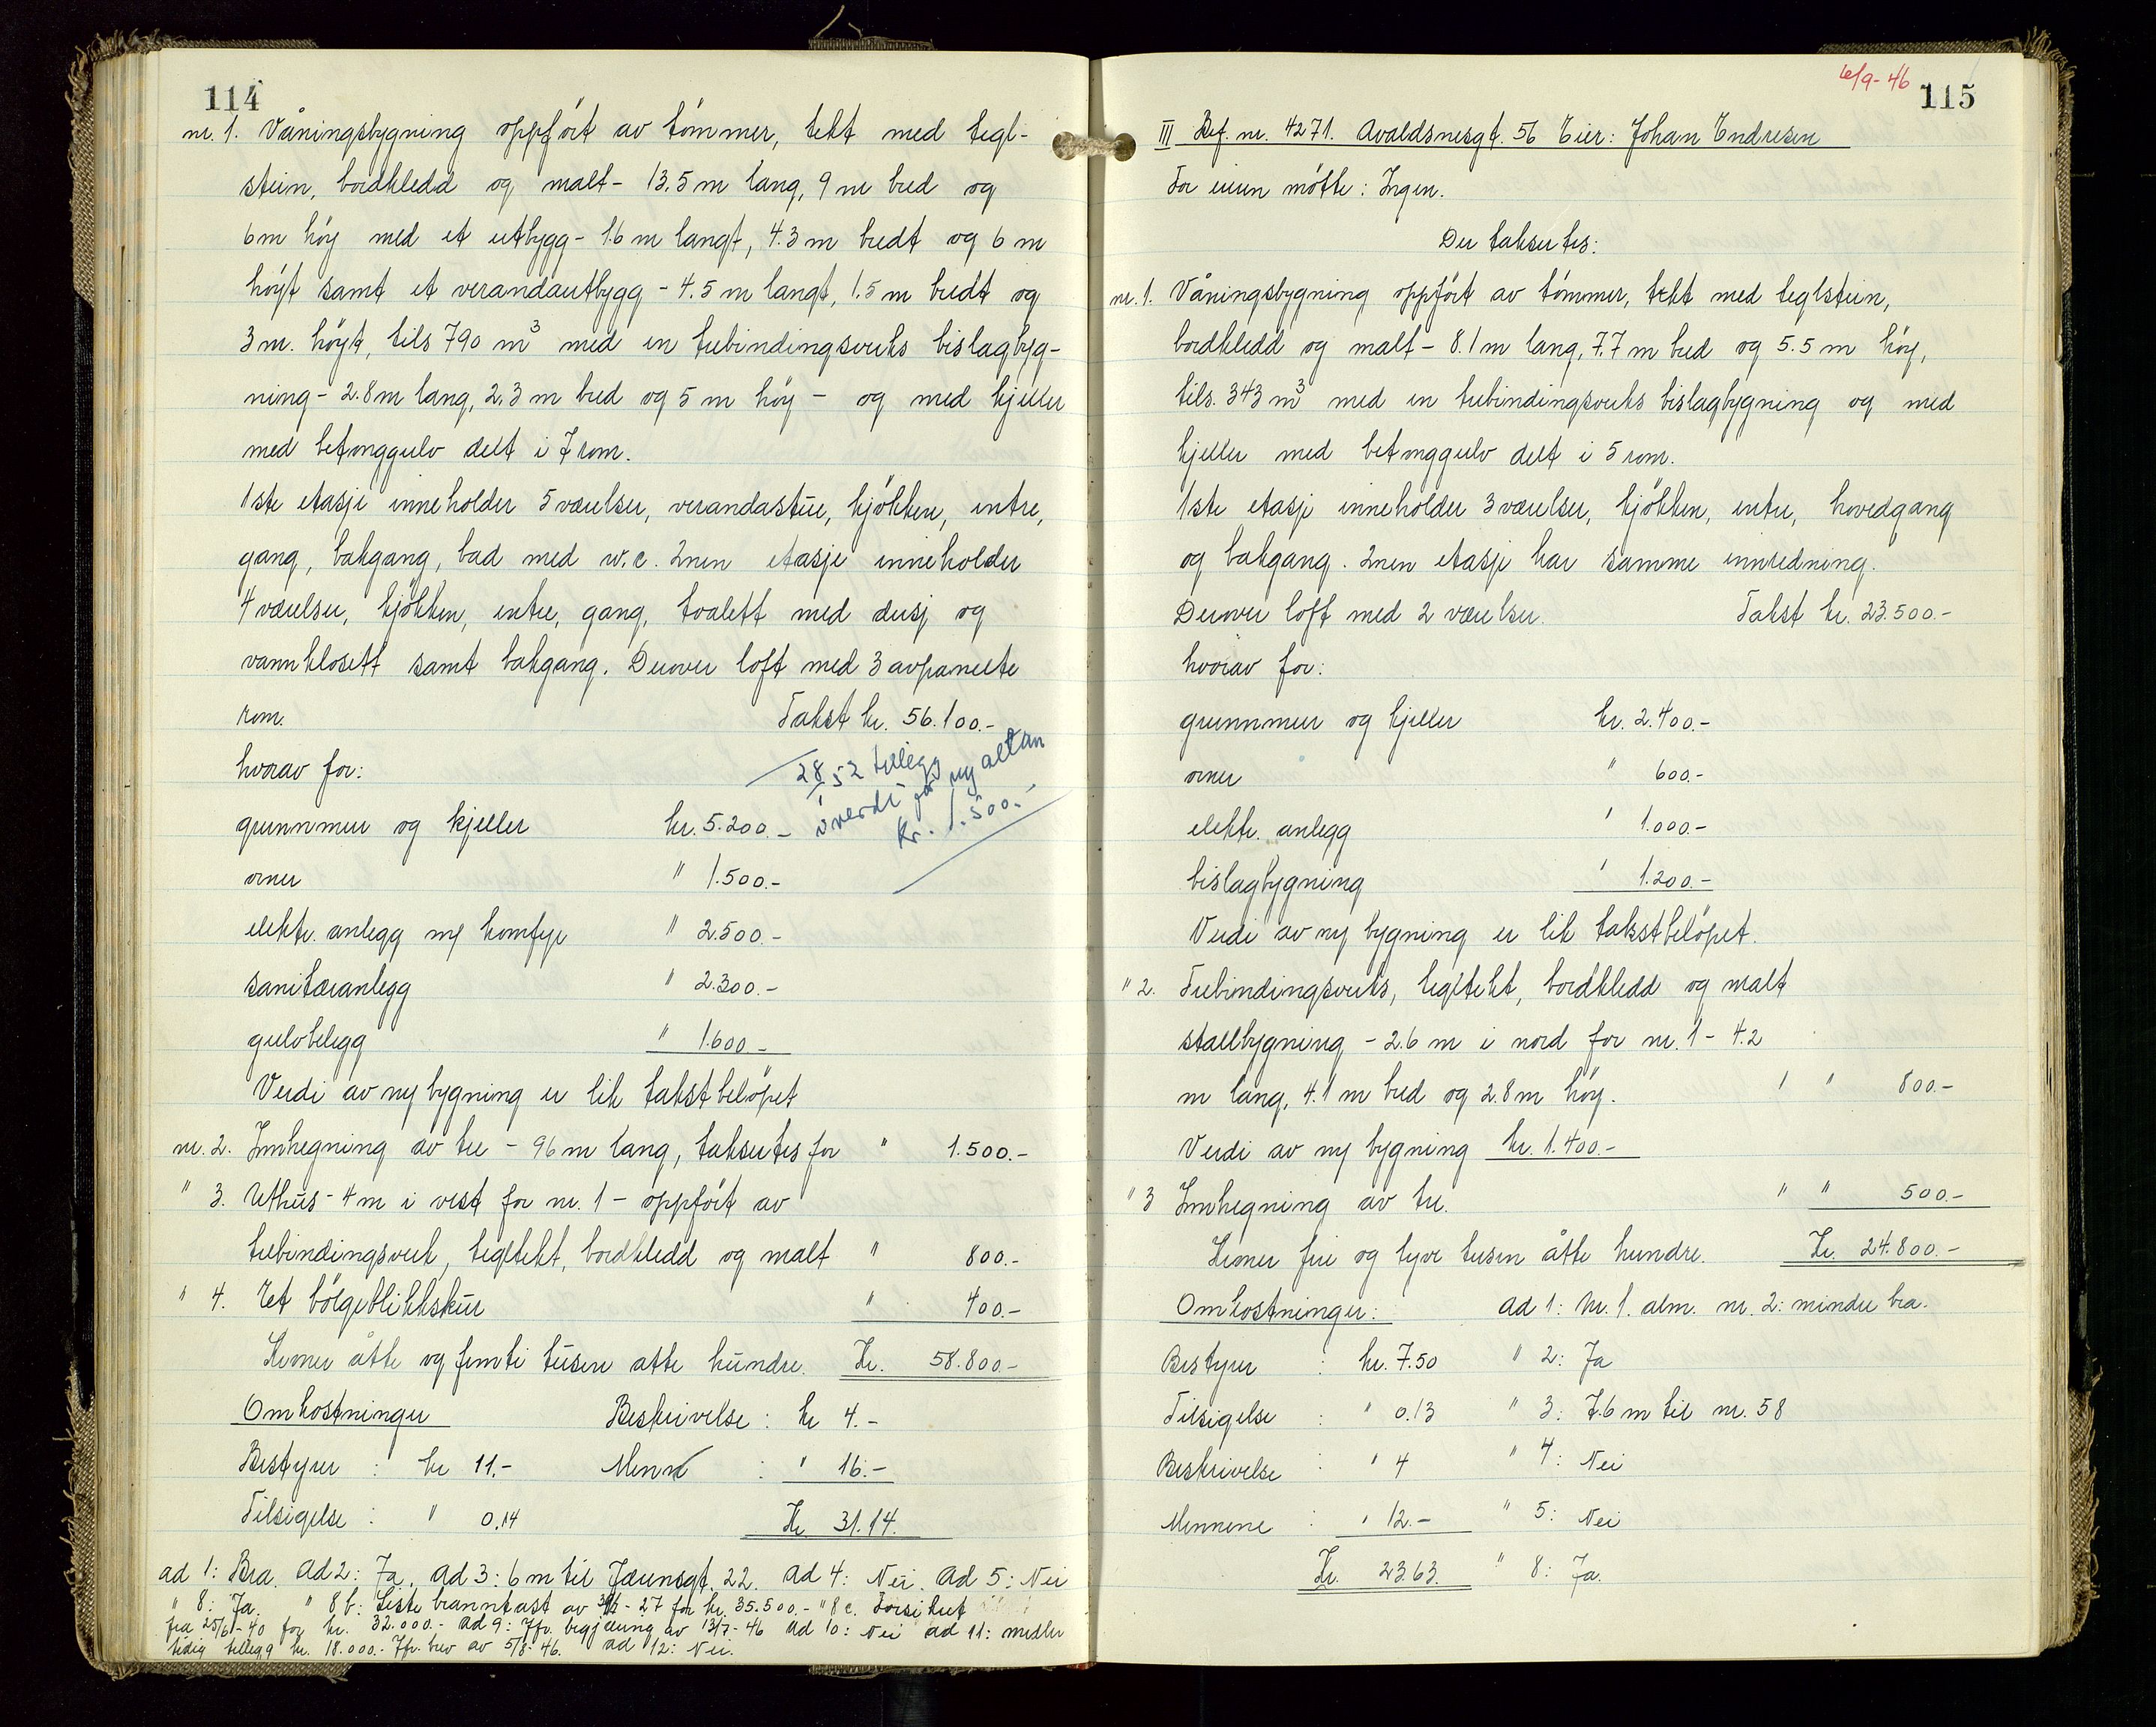 114
nr. 1. Våningsbygning oppført av tømmer, tekt med tegl-
stein, bordkledd og malt - 13.5 m lang, 9 m bred og
6 m høy med et utbygg - 1.6 m langt, 4.3 m bredt og 6 m
høyt samt et verandautbygg - 4.5 m langt, 1.5 m bredt og
3 m. høyt, tils 790 m³ med en trebindingsverks bislagbyg-
ning - 2.8 m lang, 2.3 m bred og 5 m høy - og med kjeller
med betonggulv delt i 7 rom.
1ste etasje inneholder 5 værelser, verandastue, kjøkken, entre,
gang, bakgang, bad med w.c. 2nen etasje inneholder
4 værelser, kjøkken, entre, gang, toalett med dusj og
vannklosett samt bakgang. Derover loft med 3 avpanelte
rom. Takst kr. 56.100.-
hvorav for:
28/1 52 tillegg
i verdi for ny altan
kr. 1.500.-
grunnmur og kjeller kr. 5.200.-
ovner " 1.500.-
elektr. anlegg m/ komfyr " 2.500.-
sanitæranlegg " 2.300.-
gulvbelegg " 1.600.-
Verdi av ny bygning er lik takstbeløpet
nr. 2. Innhegning av tre - 96 m lang, taksertes for " 1.500.-
" 3. Uthus - 4 m i vest for nr. 1 - oppført av
trebindingsverk, tegltekt, bordkledd og malt " 800.-
" 4. Et bølgeblikkskur " 400.-
Kroner åtte og femti tusen åtte hundre. Kr. 58.800.-
Omkostninger Beskrivelse : kr 4.-
Bestyrer : kr 11.- Menn : " 16.-
Tilsigelse : " 0.14 Kr 31.14.
ad 1: Bra. ad 2: Ja. ad 3: 6 m til Jærensgt. 22. ad 4: Nei. ad 5: Nei
" 8: Ja. " 8 b: Siste branntakst av - 27 for kr. 35.500.- " 8 c. Forsikret
fra 25/6 - 40 for kr. 32.000.- ad 9: Jfr. begjæring av 13/7 - 46 ad 10: Nei ad 11: midler
tidig tillegg kr. 18.000.- Jfr. brev av 5/8 - 46. ad 12: Nei.
6/9 - 46 115
III Bef. nr. 4271. Avaldsnesgt. 56 Eier: Johan Endresen
For eieren møtte: Ingen.
Der taksertes:
nr. 1. Våningsbygning oppført av tømmer, tekt med teglstein,
bordkledd og malt - 8.1 m lang, 7.7 m bred og 5.5 m høy,
tils. 343 m³ med en trebindingsverks bislagbygning og med
kjeller med betonggulv delt i 5 rom.
1ste etasje inneholder 3 værelser, kjøkken, entre, hovedgang
og bakgang. 2nen etasje har samme innredning.
Derover loft med 2 værelser. Takst kr. 23.500.-
hvorav for:
grunnmur og kjeller kr. 2.400.-
ovner " 600.-
elektr. anlegg " 1.000.-
bislagbygning " 1.200.-
Verdi av ny bygning er lik takstbeløpet.
" 2. Trebindingsverks, tegltekt, bordkledd og malt
stallbygning - 2.6 m i nord for nr. 1 - 4.2
m lang, 4.1 m bred og 2.8 m høy. " " 800.-
Verdi av ny bygning kr. 1.400.-
" 3 Innhegning av tre. " " 500.-
Kroner fire og tyve tusen åtte hundre. Kr. 24.800.-
Omkostninger: ad 1: Nr. 1. alm. nr. 2: mindre bra.
Bestyrer : kr. 7.50 " 2: Ja
Tilsigelse : " 0.13 " 3: 7.6 m til nr. 58
Beskrivelse : " 4 " 4: Nei
Mennene : " 12.- " 5: Nei
Kr. 23.63. " 8: Ja.